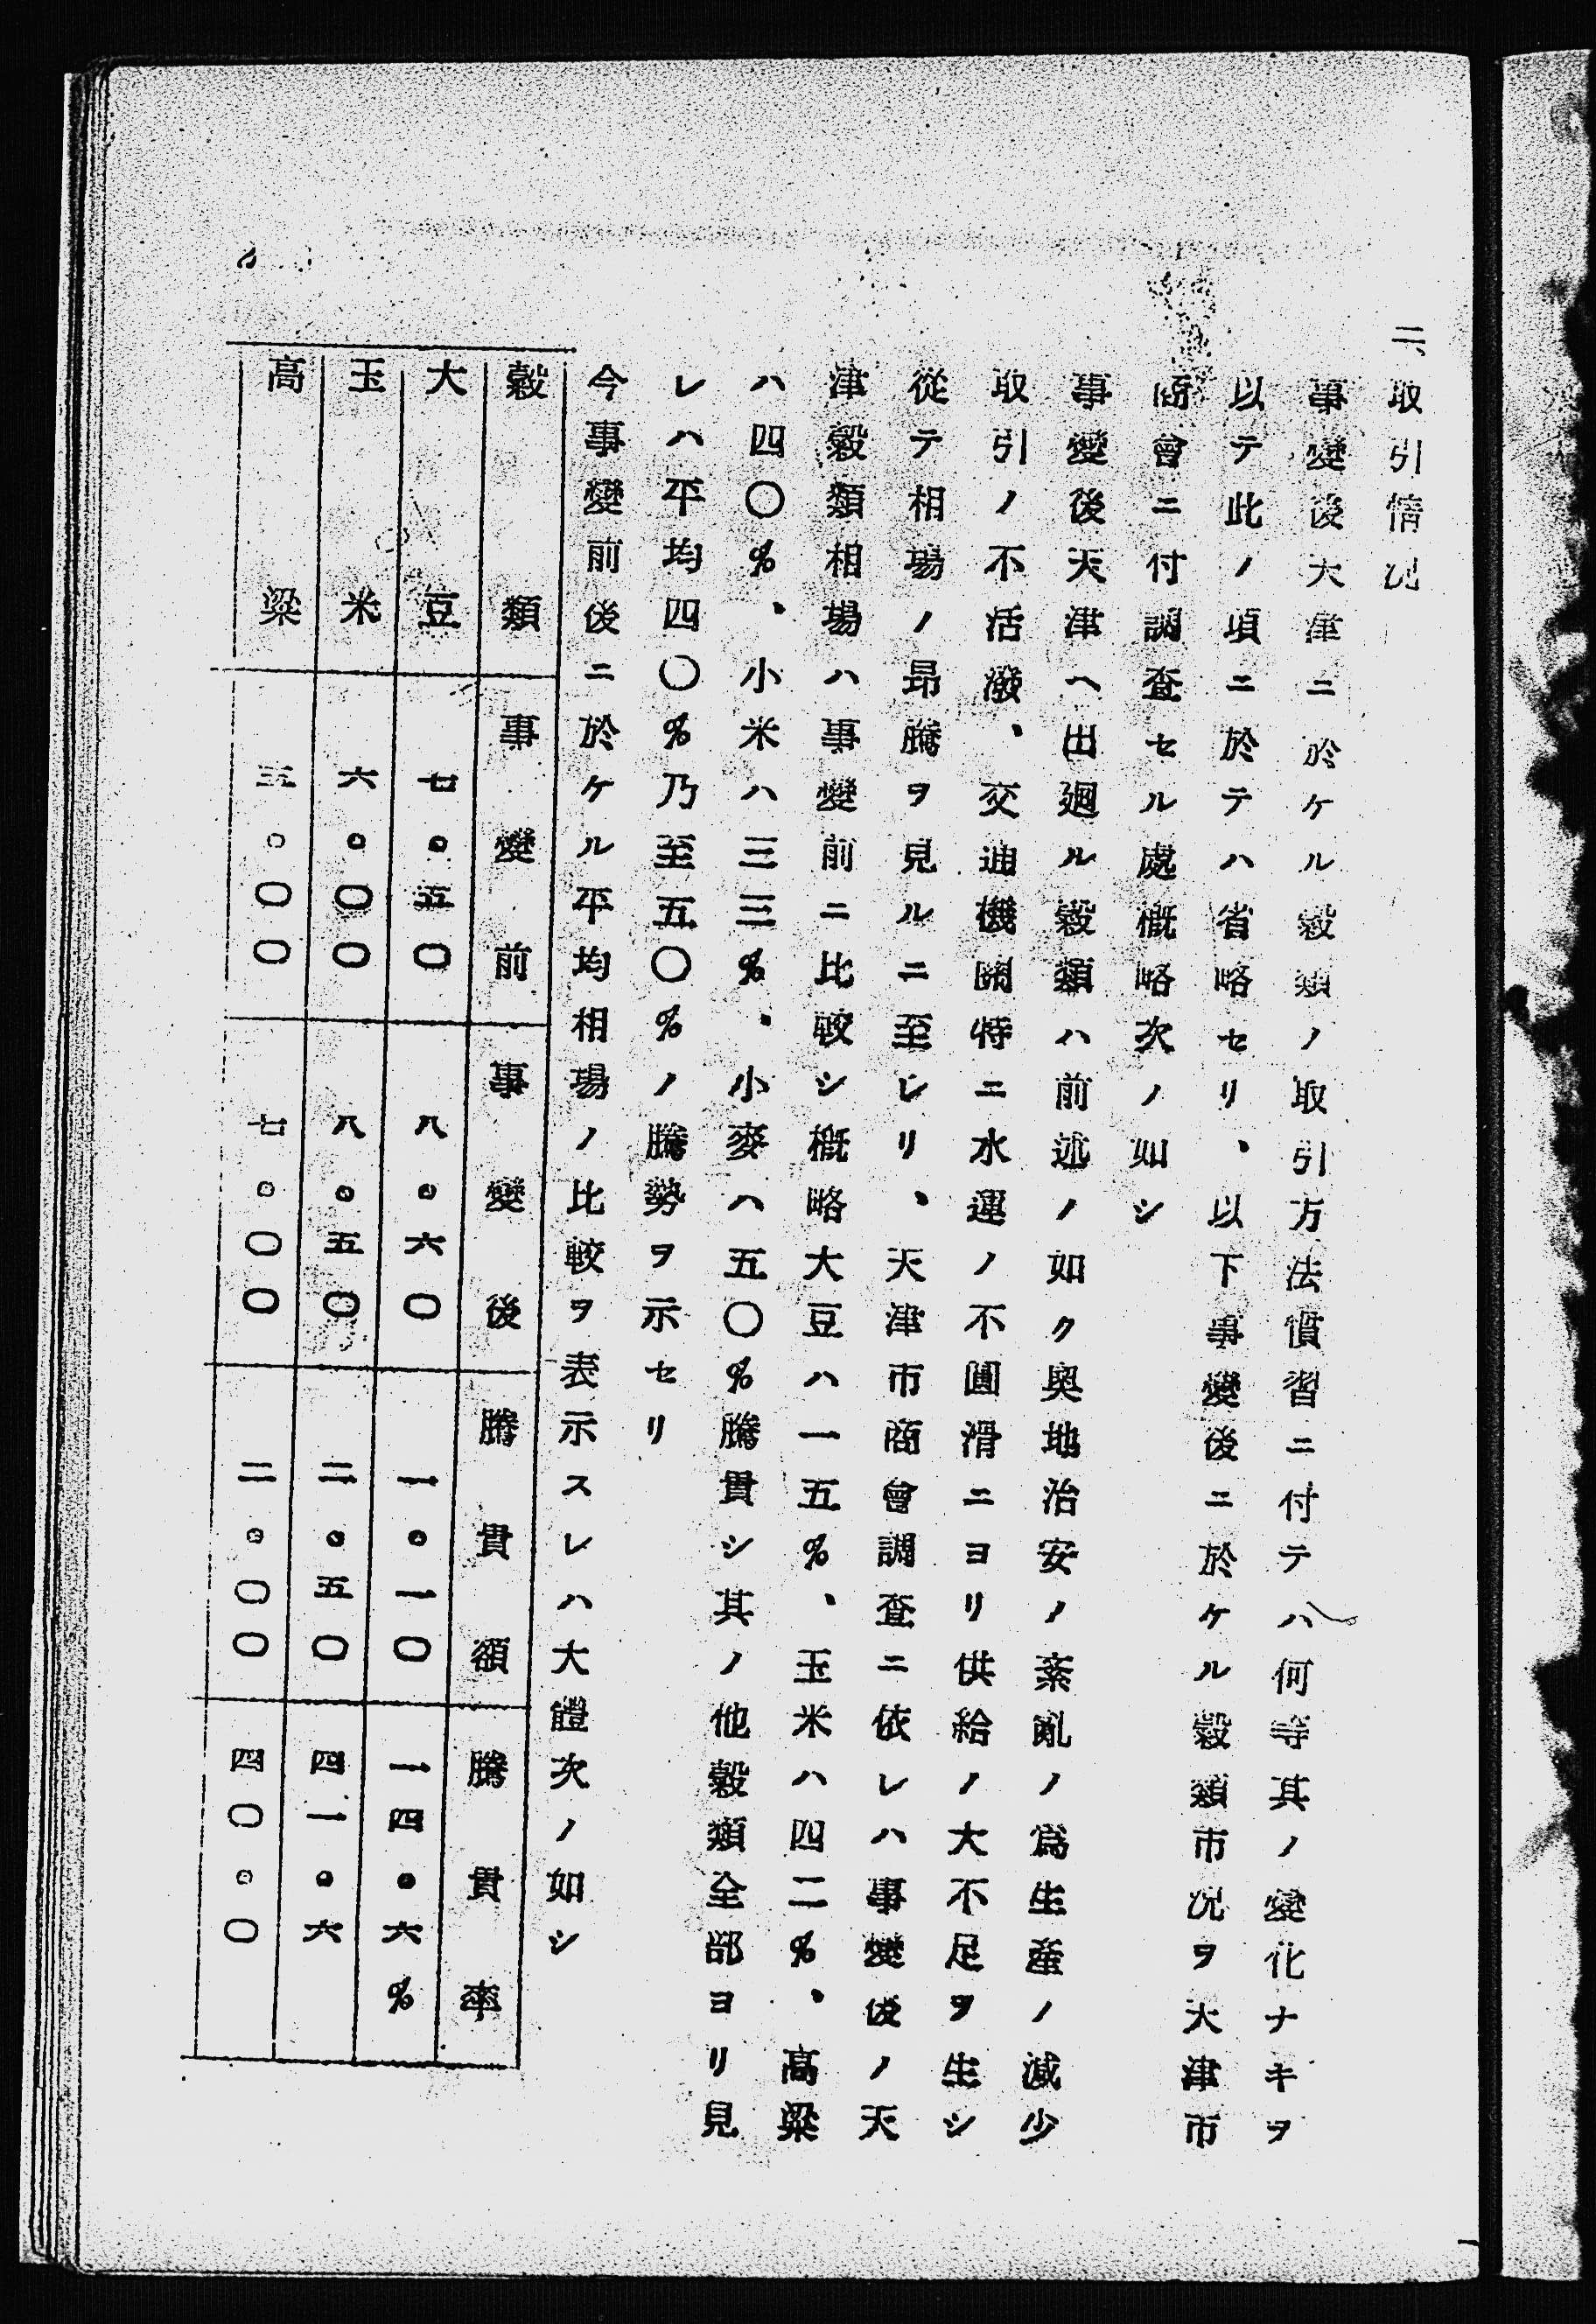 二、取引情況
事變後天津ニ於ケル穀類ノ取引方法慣習ニ付テハ何等其ノ變化ナキヲ
以テ此ノ項ニ於テハ省略セリ、以下事變後ニ於ケル穀類市況ヲ天津市
商會ニ付調査セル處概略次ノ如シ
事變後天津ヘ出廻ル穀類ハ前述ノ如ク奧地治安ノ紊亂ノ爲生產ノ減少
取引ノ不活潑、交通機關特ニ水運ノ不圓滑ニヨリ供給ノ大不足ヲ生シ
從テ相場ノ昂騰ヲ見ルニ至レリ、天津市商會調査ニ依レハ事變後ノ天
津穀類相場ハ事變前ニ比較シ概略大豆ハ一五%、玉米ハ四二%、高粱
ハ四〇%、小米ハ三三%、小麥ハ五〇%騰貴シ其ノ他穀類全部ヨリ見
レハ平均四〇%乃至五〇%ノ騰勢ヲ示セリ
今事變前後ニ於ケル平均相場ノ比較ヲ表示スレハ大體次ノ如シ
穀類 事變前 事變後 騰貴額 騰貴率
大豆 七。五〇 八。六〇 一。一〇 一四。六%
玉米 六。〇〇 八。五〇 二。五〇 四一。六
高粱 五。〇〇 七。〇〇 二。〇〇 四〇。〇